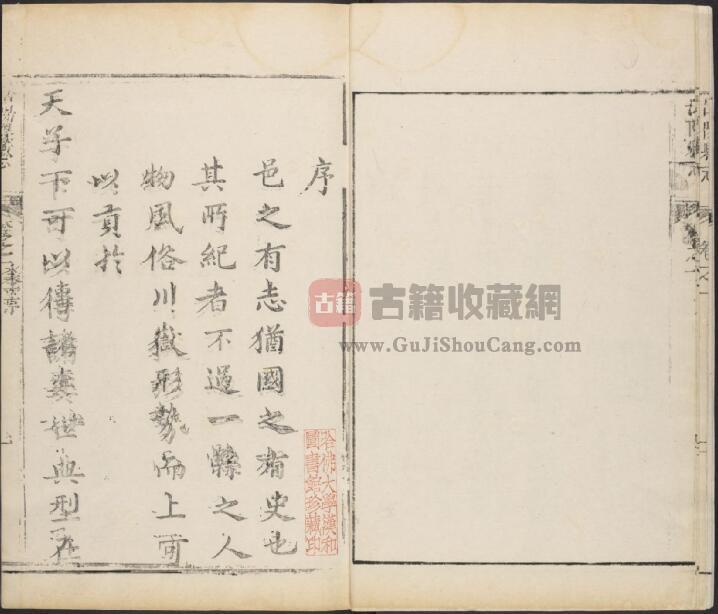 序
邑之有志猶國之有史也
其所紀者不過一縣之人
物風俗川嶽形勢而上可
以貢於
天子下可以傳諸奕世典型在
哈佛大學漢和
圖書館珍藏印
古籍
古籍收藏网
www.GuJiShouCang.com